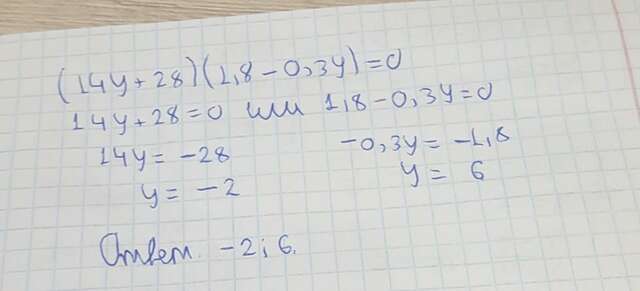 (14y+28)(1,8-0,3y)=0
14y+28=0 или 1,8-0,3y=0
14y= -28 -0,3y= -1,8
y= -2 y= 6
Ответ. -2; 6.